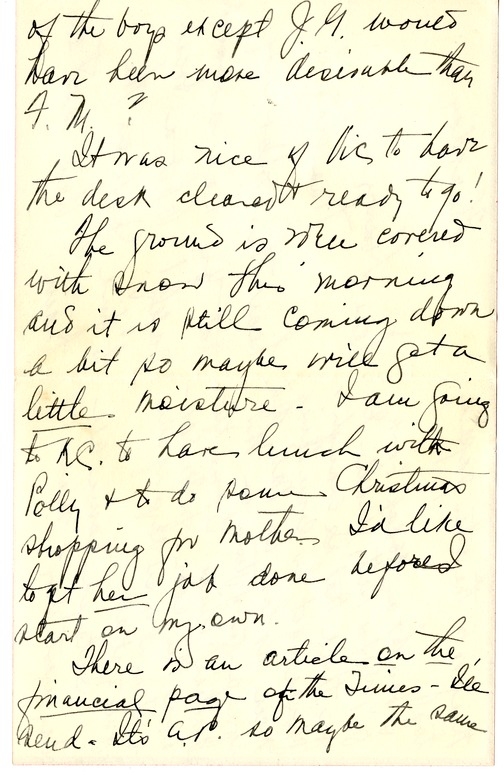 of the boys except J.G. would
have been more desirable than
F. M. ?
It was nice of Vic to have
the desk cleared & ready to go!
The ground is well covered
with snow this morning
and it is still coming down
a bit so maybe will get a
little moisture - I am going
to K.C. to have lunch with
Polly & to do some Christmas
shopping for Mother. I'd like
to get her job done before I
start on my own.
There is an article on the
financial page of the Times - I'll
send - It's A.P. so maybe the same